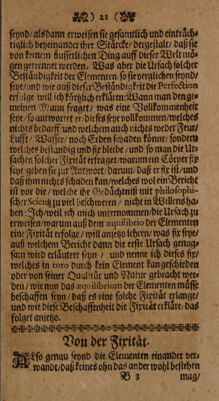 ) 21 (
seynd / als dann erweisen sie gesamtlich und einträch-
tiglich beyeinander ihre Stärcke / dergestalt / daß sie
von keinem äusserlichen Ding auff dieser Welt mö-
gen getrennet werden. Was aber die Ursach solcher
Beständigkeit der Elementen / so sie verglichen seynd /
seye / und wie auß dieser Beständigkeit die Perfection
erfolge / will ich kürtzlich erklären: Wann man den ge-
meinen Mann fraget / was eine Vollkommenheit
seye / so antwortet er / die seye vollkommen / welches
nichts bedarff / und welchem auch nichts weder Feur /
Lufft / Wasser / noch Erden schaden könne / sondern
welches beständig und fix bleibe / und so man die Ur-
sachen solcher Fixität erfraget / warum ein Cörper fix
seye / geben sie zur Antwort: darum / daß er fix ist / und
daß ihm nichts schaden kan / welches wol ein Bericht
ist vor die / welche ihr Gedächtnuß mit philosophi-
scher Scientz zu viel beschweren / nicht in Willens ha-
ben: Ich / weil ich mich unternommen / die Ursach zu
erweisen / warum auß dem æquilibrio der Elementen
eine Fixität erfolge / will anjetzo lehren / was fix seye /
auß welchem Bericht dann die erste Ursach genug-
sam wird erläutert seyn / und nenne ich dieses fix /
welches in toto durch kein Element kan geschieden
oder von seiner Qualität und Natur gebracht wer-
den / wie nun das æquilibrium der Elementen müsse
beschaffen seyn / daß es eine solche Fixität erlange /
und wie diese Beschaffenheit die Fixität erkläre / das
folget anjetzo.
Von der Fixität.
Also genau seynd die Elementen einander ver-
wandt / daß keines ohn das ander wohl bestehen
B 3 mag /